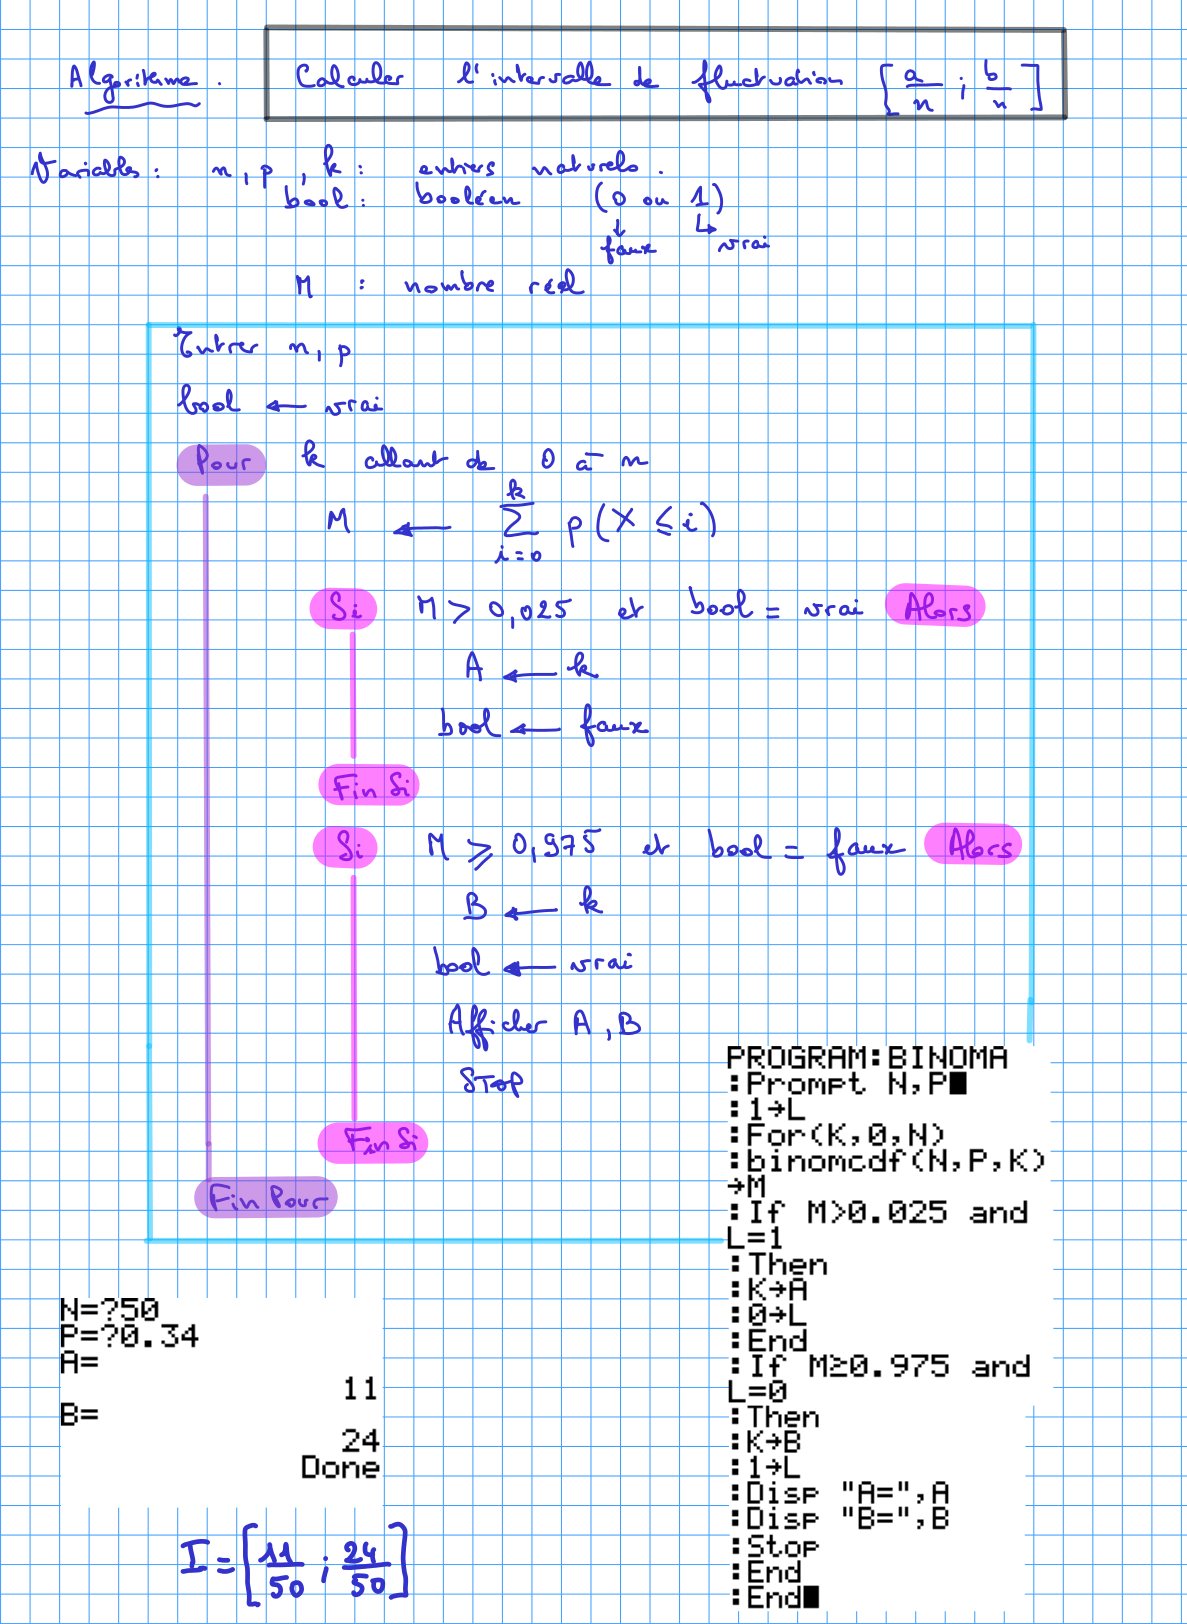 Algorithme . Calculer l'intervalle de fluctuation [ a/n ; b/n ]
Variables : n, p, k : entiers naturels.
bool : booléen (0 ou 1)
↓ ↳
faux vrai
M : nombre réel
Entrer n, p
bool ← vrai
Pour k allant de 0 à n
M ← ∑_{i=0}^{k} p(X ≤ i)
Si M > 0,025 et bool = vrai Alors
A ← k
bool ← faux
Fin Si
Si M ⩾ 0,975 et bool = faux Alors
B ← k
bool ← vrai
Afficher A, B
STOP
Fin Si
Fin Pour
PROGRAM:BINOMA
:Prompt N,P
:1→L
:For(K,0,N)
:binomcdf(N,P,K)
→M
:If M>0.025 and
L=1
:Then
:K→A
:0→L
:End
:If M≥0.975 and
L=0
:Then
:K→B
:1→L
:Disp "A=",A
:Disp "B=",B
:Stop
:End
:End
N=?50
P=?0.34
A=
11
B=
24
Done
I = [ 11/50 ; 24/50 ]